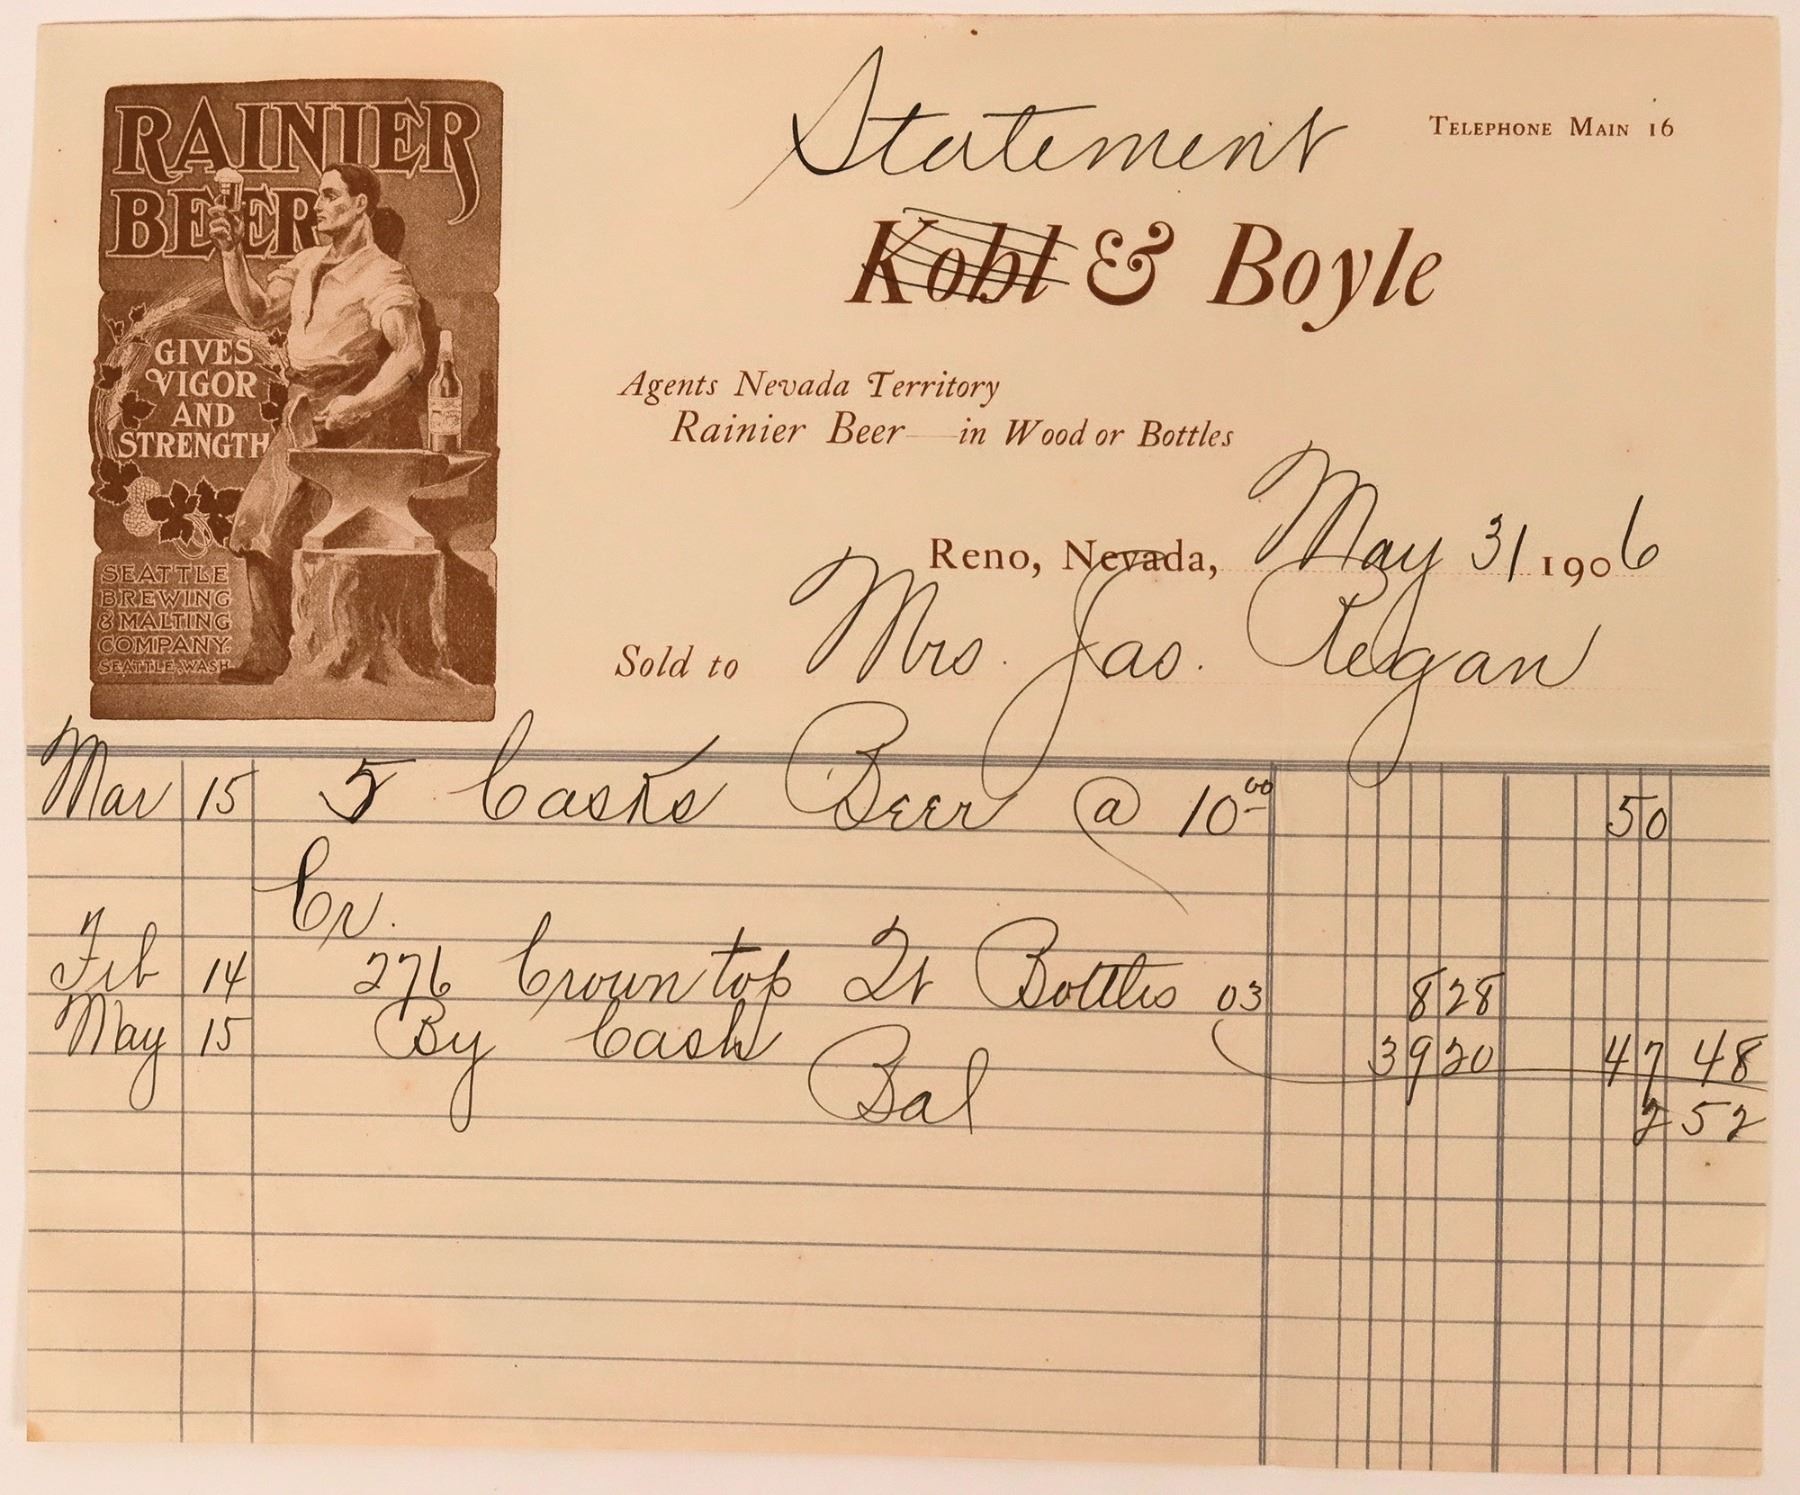 RAINIER
BEER
GIVES
VIGOR
AND
STRENGTH
SEATTLE
BREWING
& MALTING
COMPANY.
SEATTLE, WASH.
Statement
Telephone Main 16
Kohl & Boyle
Agents Nevada Territory
Rainier Beer — in Wood or Bottles
Reno, Nevada, May 31 1906
Sold to Mrs. Jas. Regan
Mar 15 5 Casks Beer @ 10.00 50
Cr.
Feb 14 276 Crown top Qt Bottles 03 8 28
May 15 By Cash 39 20 47 48
Bal 2 52